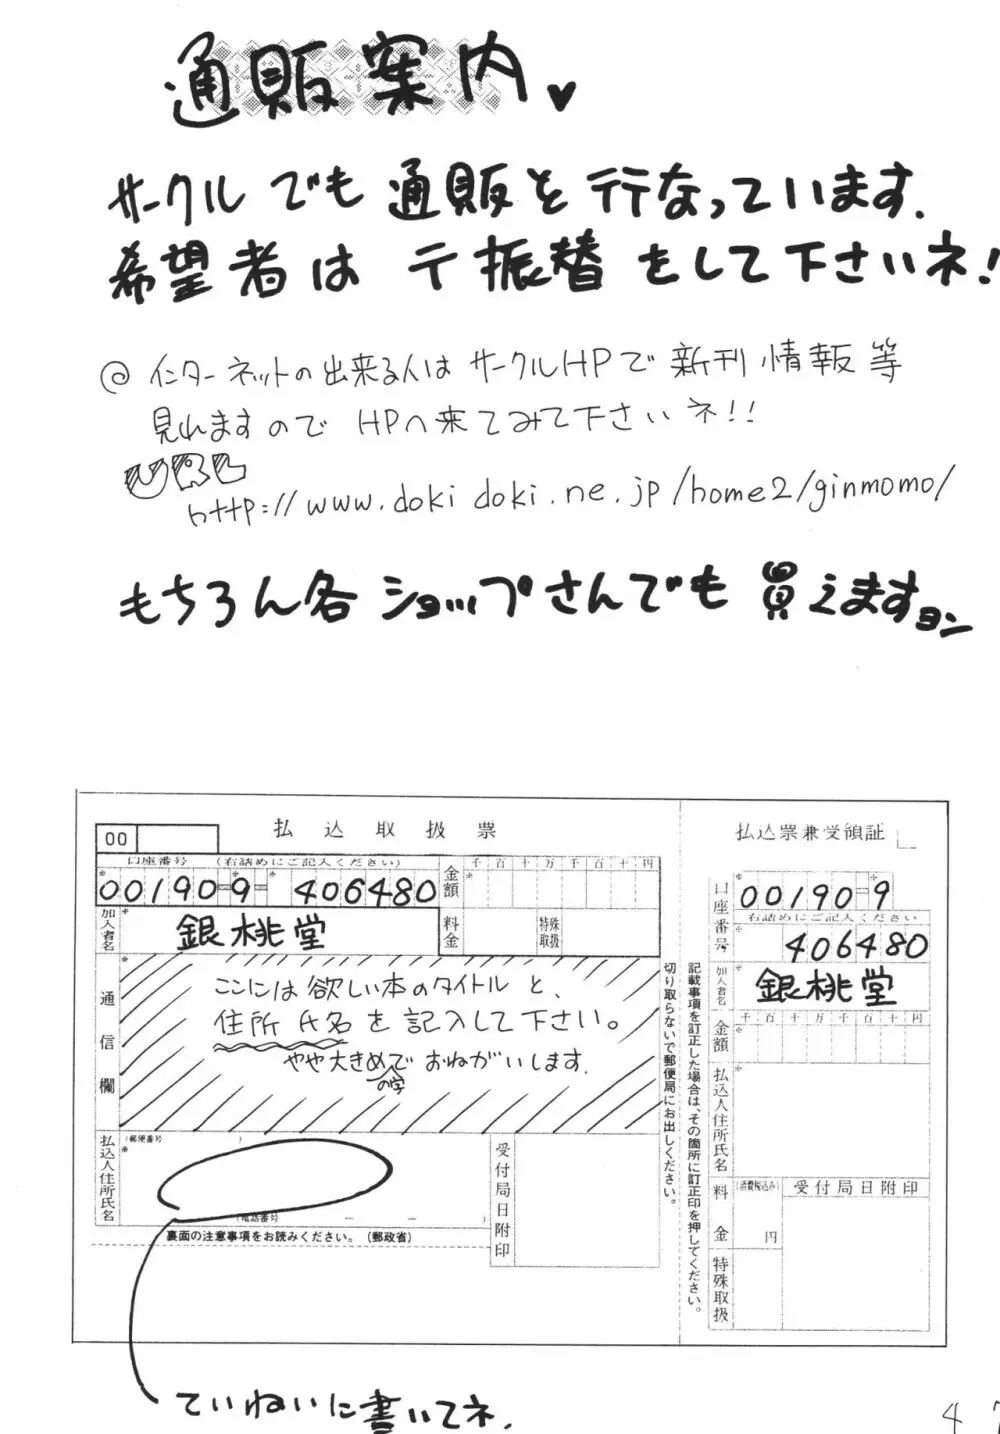 通販案内♥
サークルでも通販を行なっています.
希望者は〒振替をして下さいネ!
@ インターネットの出来る人はサークルHPで新刊情報等
見れますので HPへ来てみて下さいネ!!
URL
http://www.dokidoki.ne.jp/home2/ginmomo/
もちろん各ショップさんでも買えますョン
00
払込取扱票
口座番号 (右詰めにご記入ください)
00190-9-406480
金額
千百十万千百十円
加入者名
銀桃堂
料金
特殊取扱
通信欄
ここには欲しい本のタイトルと、
住所氏名を記入して下さい。
やや大きめの字でおねがいします.
払込人住所氏名
(郵便番号 )
(電話番号 - - )
裏面の注意事項をお読みください。(郵政省)
受付局日附印
切り取らないで郵便局にお出しください。
記載事項を訂正した場合は、その箇所に訂正印を押してください。
払込票兼受領証
口座番号
00190-9
右詰めにご記入ください
406480
加入者名
銀桃堂
金額
千百十万千百十円
払込人住所氏名
料金
(消費税込み)
円
受付局日附印
特殊取扱
ていねいに書いてネ.
47